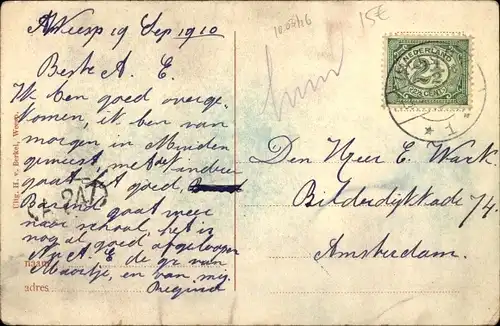 Weesp 19 Sep 1910
Beste A. E.
Ik ben goed overge-
komen, ik ben van
morgen in Muiden
geweest met de andre
gaat het goed,
Barend gaat weer
naar school, het is
nog al goed afgeloopen
A. E de gr van
Maartje, en van mij
naam
adres
Uitg. H. v. Berkel, Weesp
15€
NEDERLAND
2½
CENT
Den Heer E. Wark.
Bilderdijkkade 74.
Amsterdam.